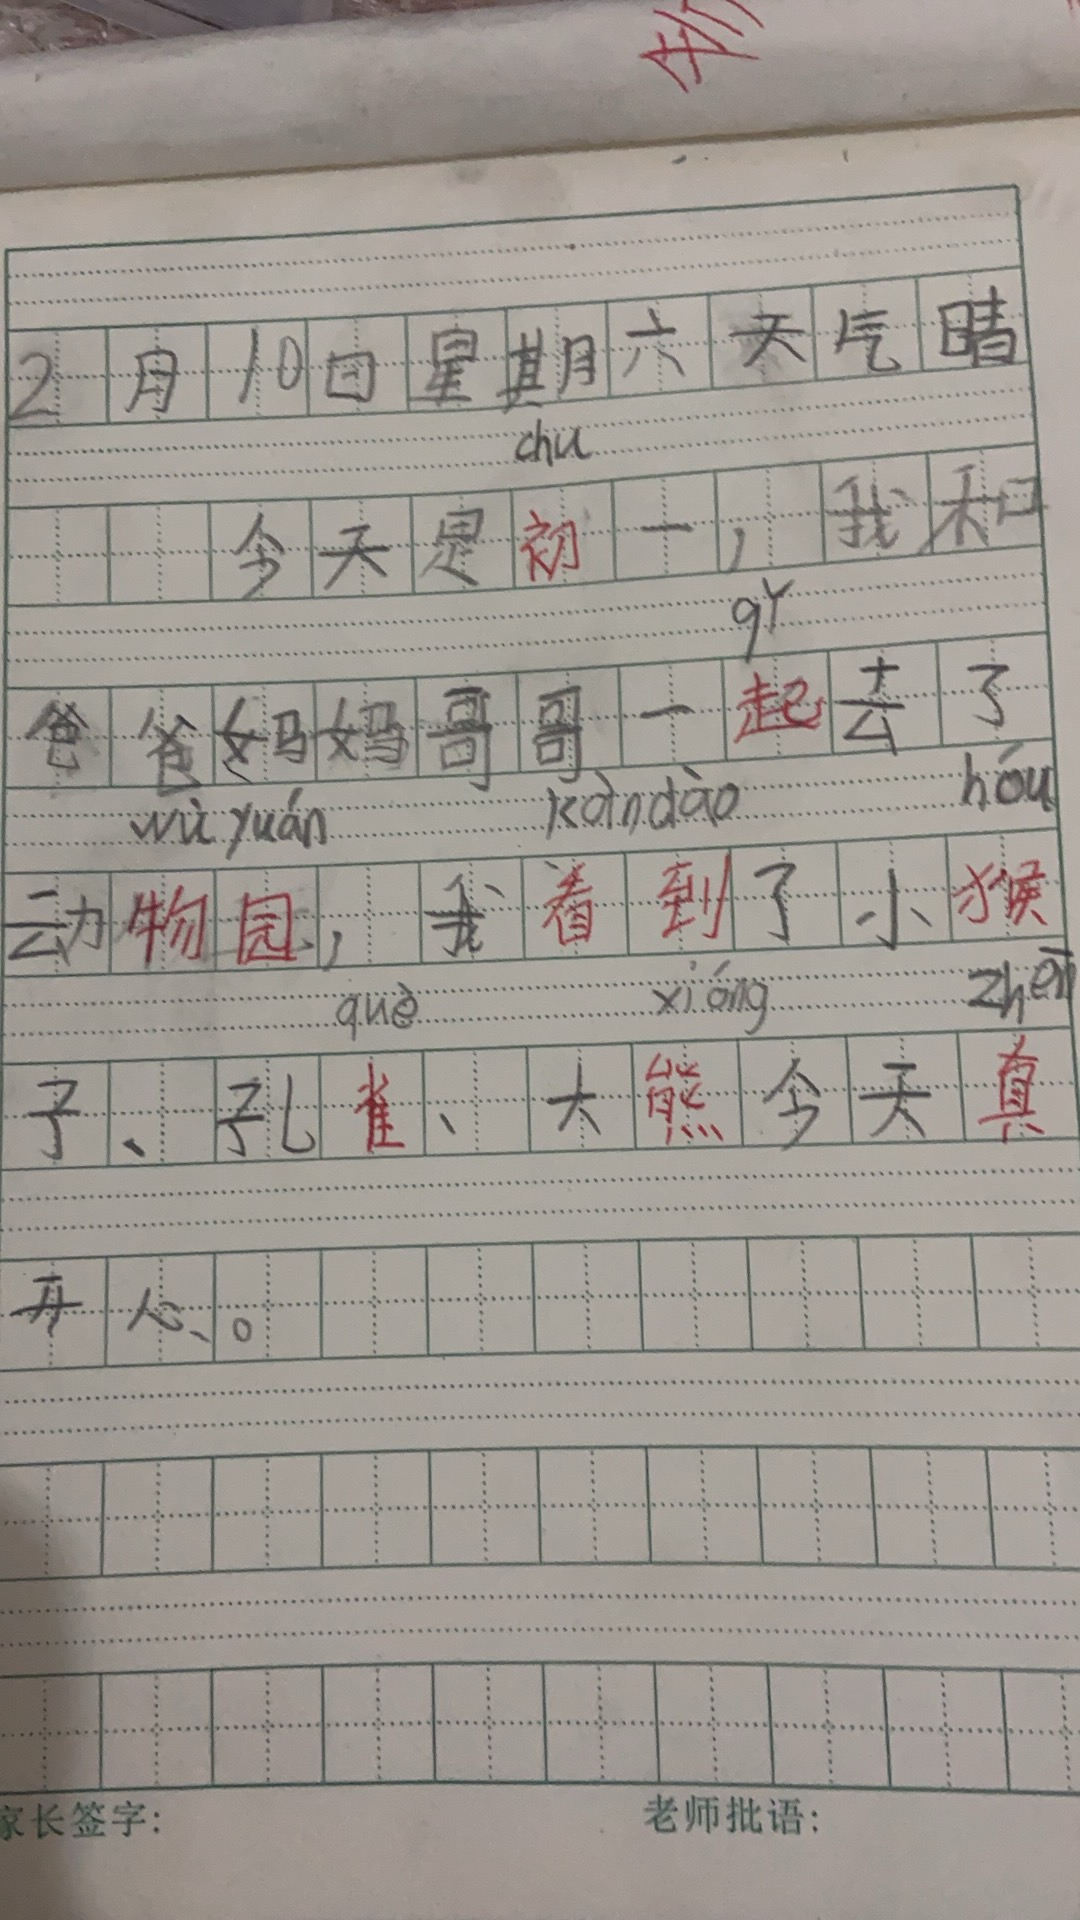 2月10日星期六天气晴
chu
今天是初一，我和
qǐ
爸爸妈妈哥哥一起去了
wù yuán kàn dào hóu
动物园，我看到了小猴
què xióng zhēn
子、孔雀、大熊今天真
开心。
家长签字: 老师批语: